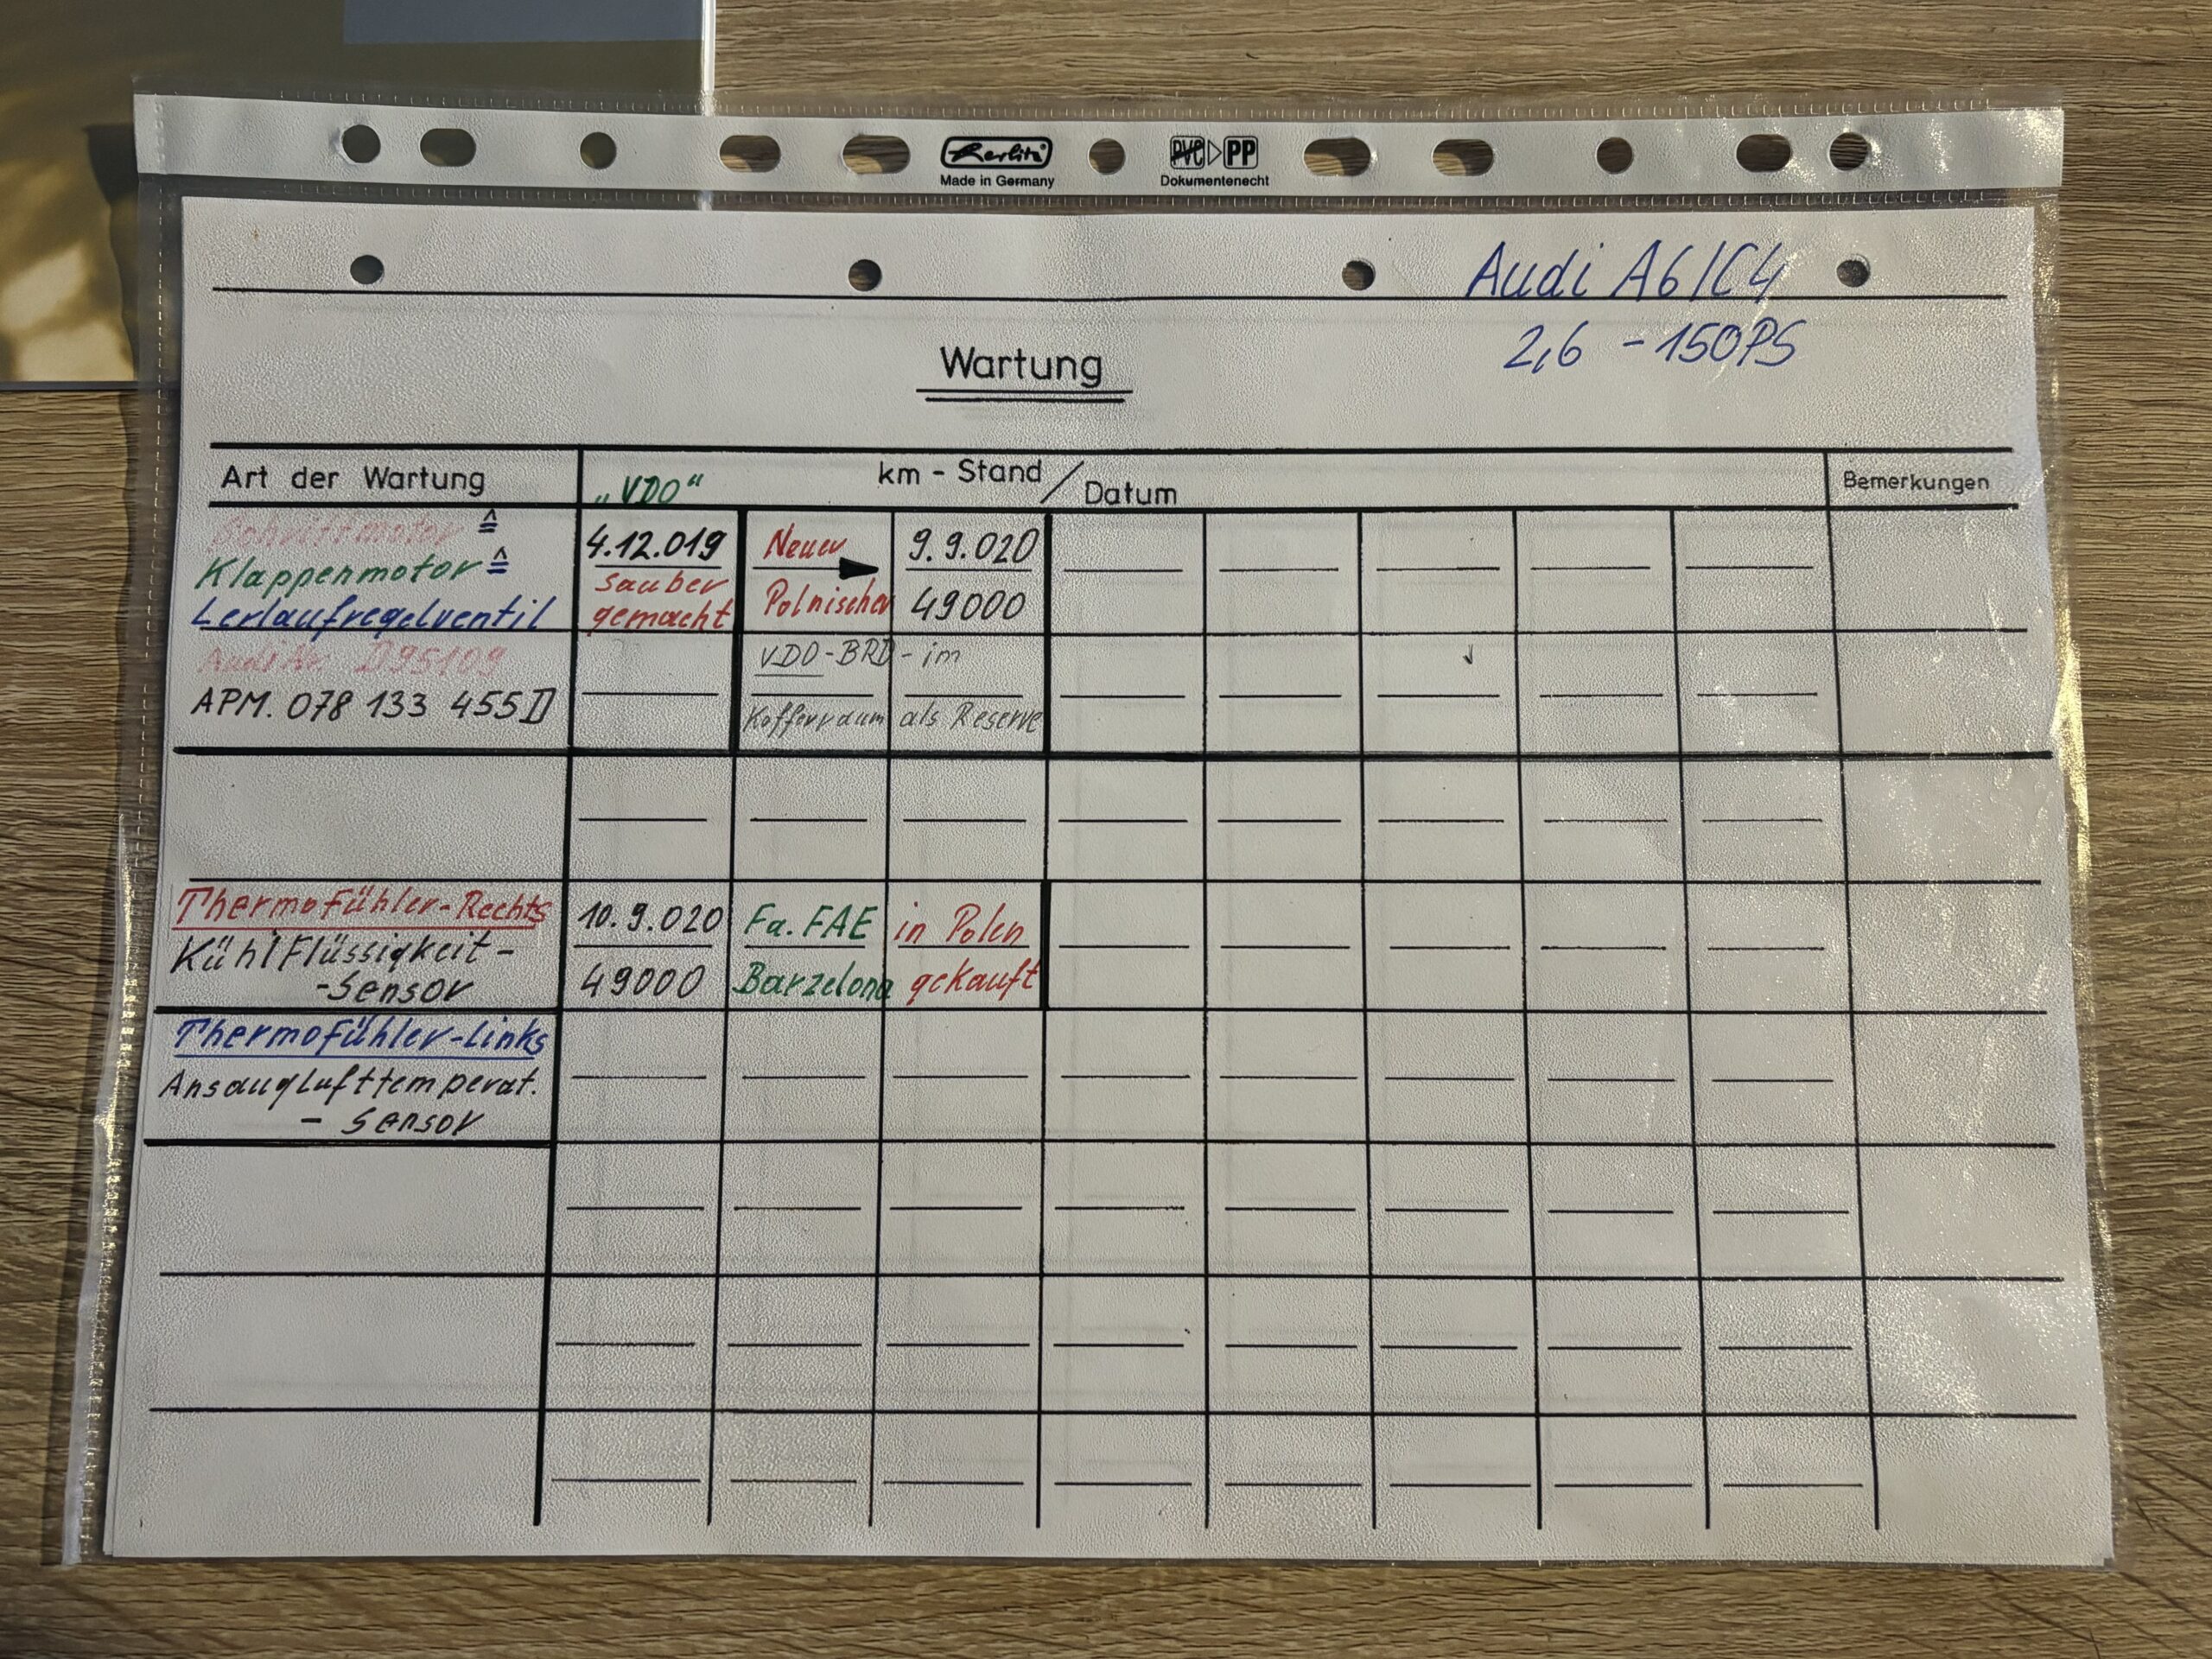 Herlitz
PVC PP
Made in Germany
Dokumentenecht
Audi A6/C4
2,6 - 150PS
Wartung
Art der Wartung
„VDO“
km - Stand / Datum
Bemerkungen
Schrittmotor ≙
Klappenmotor ≙
Lerlaufregelventil
4.12.019
sauber
gemacht
Neuer
Polnischer
9.9.020
49000
Audi Nr. D95109
APM. 078 133 455D
VDO-BRD - im
Kofferraum als Reserve
Thermofühler-Rechts
KühlFlüssigkeit-
-Sensor
10.9.020
49000
Fa. FAE in Polen
Barzelona gekauft
Thermofühler-Links
Ansauglufttemperat.
- Sensor